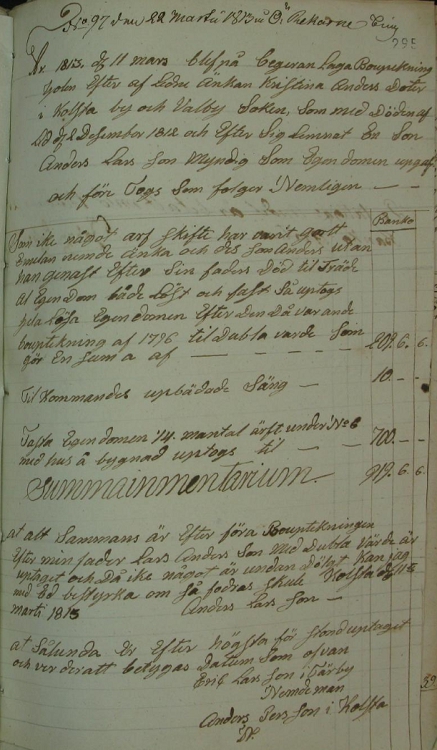 No 97 den 22 Martii 1813
År 1813, d 11 mars blef på begeran Laga Bouptekning
holen Efter af Ledne Änkan Kristina Anders Doter
i Kolsta by och Valby Soken, Som med Döden af
led d 2 Desember 1812 och Efter Sig Lemnat En Son
Anders Lars Son Myndig Som Egendomen upgaf
och före Togs Som följer Nemligen
Banko
Som ike något arf skifte har varit gort
emelan nemde Änka och des Son Anders utan
han genast Efter Sin faders Död til Träde
al Egen Dom både Löst och fast Så uptogs
hela Lösa Egendomen Efter Den Då varande
bouptekning af 1796 til Dubla varde Som
gör En Suma af — 209. 6. 6
Til Kommandes upbädade Säng — 10. - -
Fasta Egendomen 1/4 mantal under No 6
med hus å bygnad uptogs til — 700 - -
Summa inmentarium. 919. 6. 6
at alt Sammans är Efter föra Bouptekningen
Efter min fader Lars Anders Son Med Dubla Värde är
uptaget och Då ike något är undan Dölgt kan jag
med Ed bestyrka om så fodras skule Kolsta d 11
marti 1813 Anders Lars Son
at Sålunda är Efter högsta för stond uptaget
och verderatt betygas Datum Som ofvan
Eric Lars Son i Tärby
Nemdeman
Anders Pers Son i Kolsta